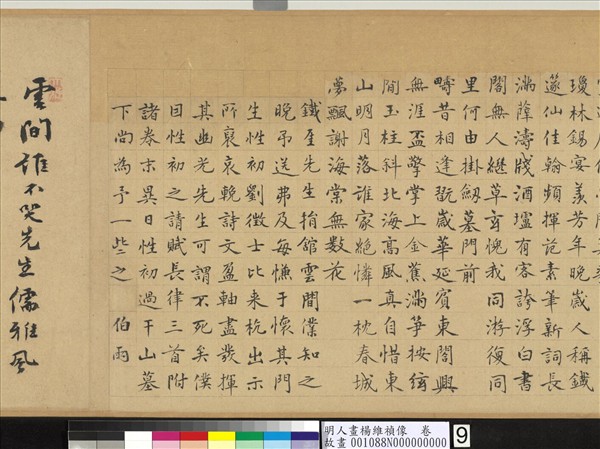 瓊林錫宴羨芳年晚歲人稱鐵
篴仙佳翰頻揮 素筆新詞長
滿薛濤牋酒壚有客誇浮白書
閣無人繼草玄愧我同游復同
里何由掛劒墓門前
疇昔相逢翫歲華延賓東閣興
無涯盃擎掌上金蕉滿箏按絃
間玉柱斜北海高風真自惜東
山明月落誰家絕憐一枕春城
夢飄謝海棠無數花
鐵厓先生捐館雲間僕知之
晚弔送弗及每慊于懷其門
生性初劉徵士比來杭出示
所裒哀輓詩文盈軸盡發揮
其幽光先生可謂不死矣僕
目性初之請賦長律三首附
諸卷末異日性初過干山墓
下尚為予一些之 伯雨
雲間誰不哭先生儒雅風
明人畫楊維禎像 卷
故畫 001088N000000000
9